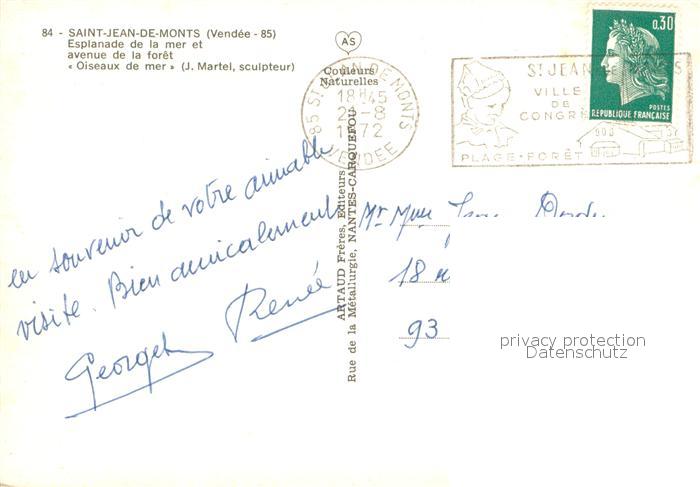 84 - SAINT-JEAN-DE-MONTS (Vendée - 85)
Esplanade de la mer et
avenue de la forêt
« Oiseaux de mer » (J. Martel, sculpteur)
AS
Couleurs
Naturelles
85 ST JEAN DE MONTS
18H45
-8
1972
VENDEE
ST JEAN DE MONTS
VILLE
DE
CONGRÈ
PLAGE-FORÊT
0,30
POSTES
REPUBLIQUE FRANÇAISE
en souvenir de votre aimable
visite. Bien amicalement
Georges Renée
ARTAUD Frères, Editeurs
Rue de la Métallurgie, NANTES-CARQUEFOU
Mr Mme
18
93
privacy protection
Datenschutz